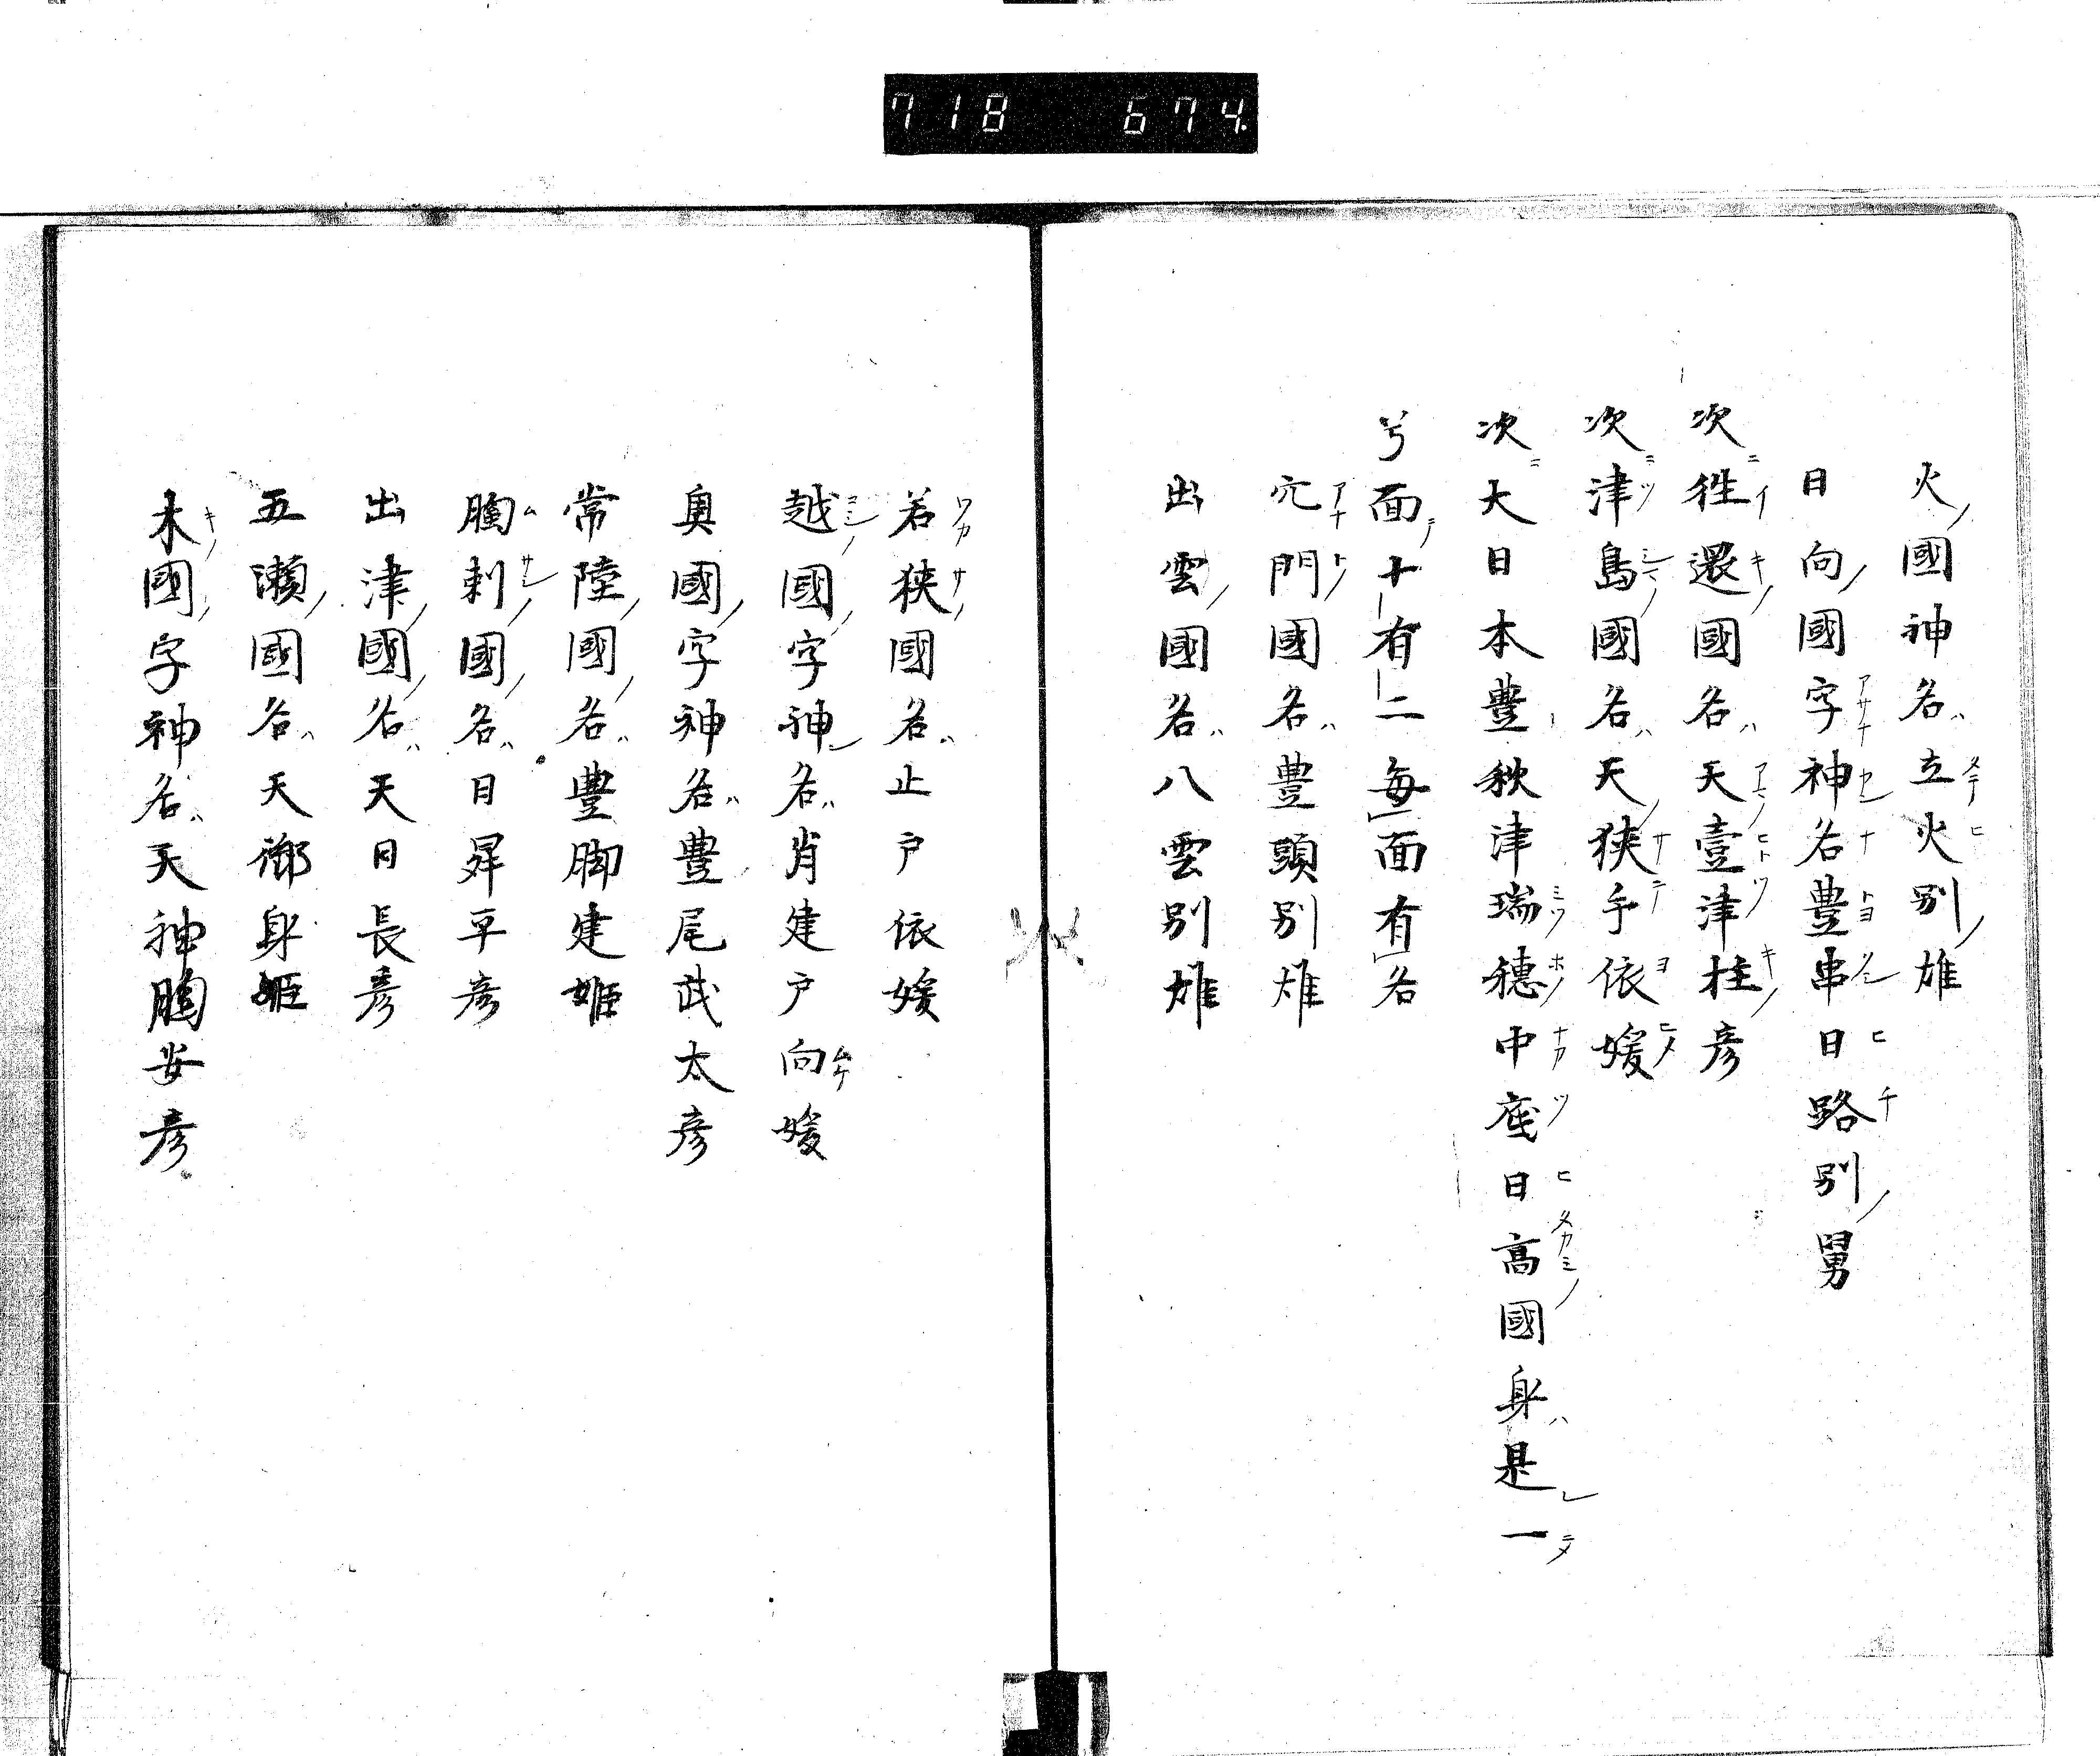 718 674.
火國神名立火別雄
日向國字神名豊串日路別舅
次徃還國名天壹津柱彦
次津島國名天狭手依媛
次大日本豊秋津瑞穂中庭日高國身是一
兮面十有二每面有各
穴門國名豊頭別雄
出雲國名八雲別雄
若狭國名止戸依媛
越國字神名肖建戸向媛
奥國字神名豊尾武太彦
常陸國名豊脚建姫
胸刺國名日昇平彦
出津國名天日長彦
五瀬國名天御身姫
木國字神名天神胸安彦